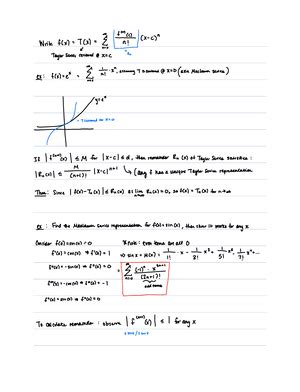 Write f(x) = T(x) = Σ_{n=0}^{∞} [f^{(n)}(c) / n!] (x-c)^n
Taylor Series centered @ x=c
ex: f(x) = e^x = Σ_{n=0}^{∞} 1/n! · x^n, assuming T centered @ x=0 (aka Maclaurin Series)
y=e^x
T centered at x=0
If |f^{(n+1)}(x)| ≤ M for |x-c| ≤ d, then remainder R_n(x) of Taylor Series satisfies:
|R_n(x)| ≤ M/(n+1)! |x-c|^{n+1} (Any f has a unique Taylor Series representation
Thm: Since |f(x)-T_n(x)| ≤ R_n(x) if lim_{n→∞} R_n(x) = 0, so f(x) = T_n(x) for n→∞
ex: Find the Maclaurin Series representation for f(x) = sin(x), then show it works for any x
Consider f(0) = sin(0) = 0 *Note: even terms are all 0
f'(x) = cos(x) ⇒ f'(0) = 1 ⇒ sin x = M(x) = 1/1! · x - 1/3! x^3 + 1/5! x^5 - 1/7! x^7 ...
f''(x) = -sin(x) ⇒ f''(0) = 0 = Σ_{n=0}^{∞} (-1)^n · x^{2n+1} / (2n+1)!
f'''(x) = -cos(x) ⇒ f'''(0) = -1 odd terms
f''''(x) = sin(x) ⇒ f''''(0) = 0
To calculate remainder: observe |f^{(n+1)}(x)| ≤ 1 for any x
sinx/cosx